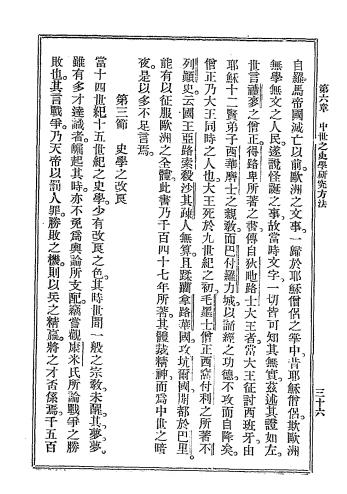 第六章　中世之史學研究方法
三十六
自羅馬帝國滅亡以前歐洲之文事一歸於耶穌僧侶之掌中昔耶穌僧侶欺歐洲
無學無文之人民遂說怪誕之事故當時文字一切皆可知其無實茲述其證如左
世言禧麥之僧正得路卑所著之書傳自狄地路士大王者當大王征討西班牙由
耶穌十二賢弟子西華摩士之親敎而巴付羅力城以誦經之功德不攻而自降矣
僧正乃大王同時之人也大王死於九世紀之初毛羅士僧正西富付利之所著不
列顛史云國王亞路索殺沙其疎人無算且蹂躪拿路華國攻坑爾國開都於巴里
能有以征服歐洲之全體此書乃千百四十七年所著其體裁精神而爲中世之暗
夜是以多不足言焉
第三節　史學之改良
當十四世紀十五世紀之史學少有改良之色其時世間一般之宗敎未醒其夢夢
雖有多才達識者崛起其時亦不免爲輿論所支配竊嘗觀康米氏所論戰爭之勝
敗也其言戰爭乃天帝以罰人罪勝敗之機則以兵之精羸將之才否係焉千五百